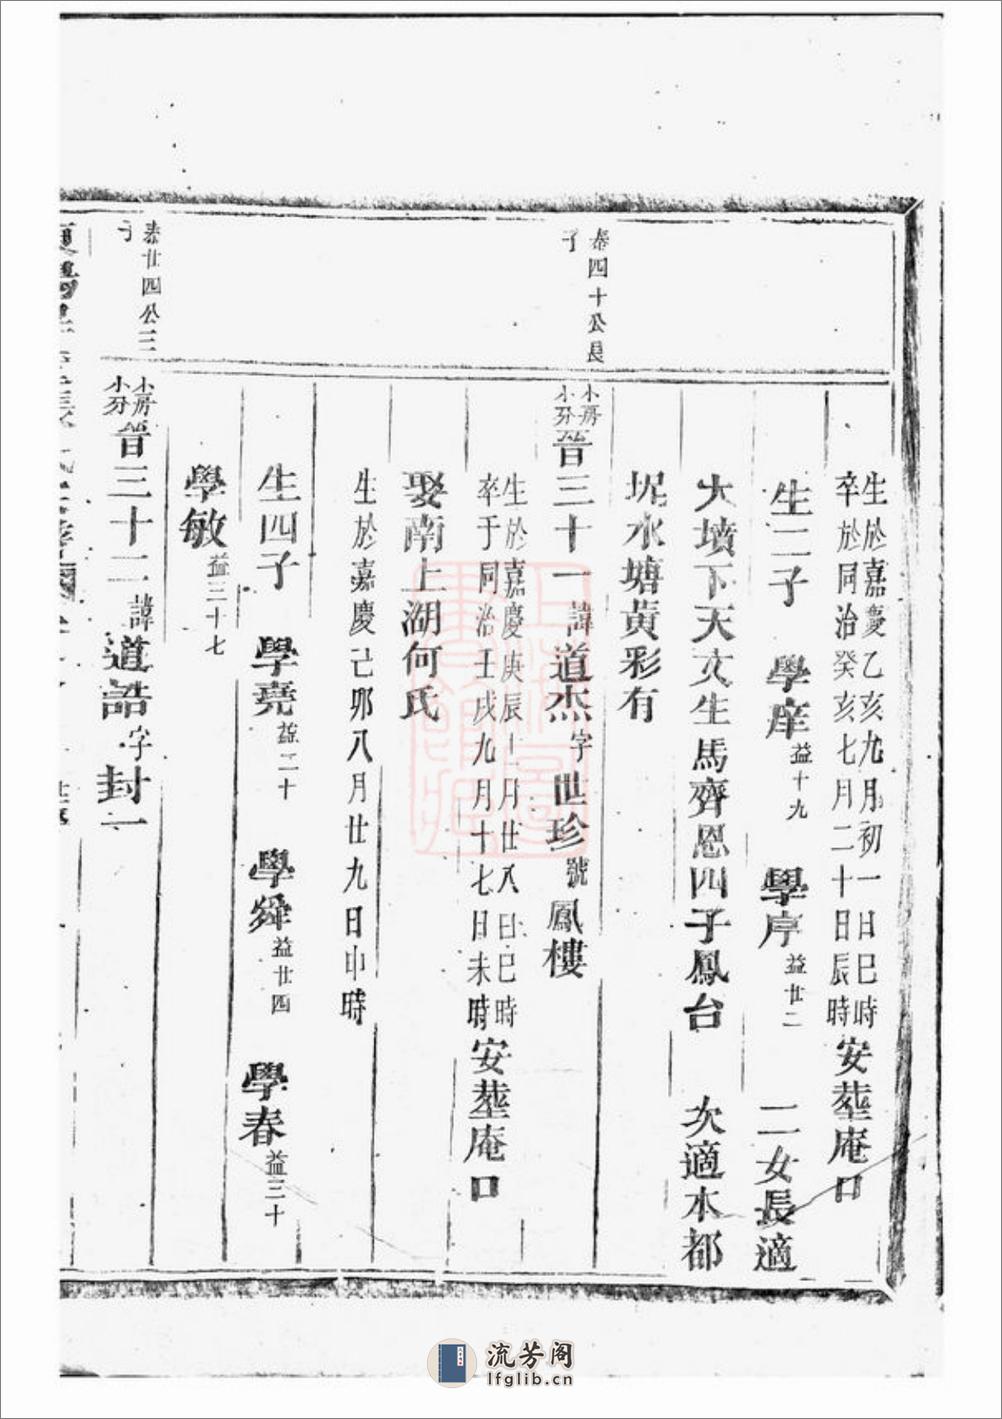 生於嘉慶乙亥九月初一日巳時
卒於同治癸亥七月二十日辰時
安塟庵口
生二子 學庠 益十九 學序 益廿二 二女長適
大墳下天文生馬齊恩四子鳳台 次適本都
坭水塘黃彩有
泰四十公長
子
小房
小分
晉三十一 諱道杰 字世珍 號鳳樓
生於嘉慶庚辰十二月廿八日巳時
卒于同治壬戌九月十七日未時
安塟庵口
娶南上湖何氏
生於嘉慶己卯八月廿九日申時
生四子 學堯 益二十 學舜 益廿四 學春 益三十
學敏 益三十七
泰廿四公三
子
小房
小分
晉三十二 諱道誥 字封一
流芳阁
lfglib.cn